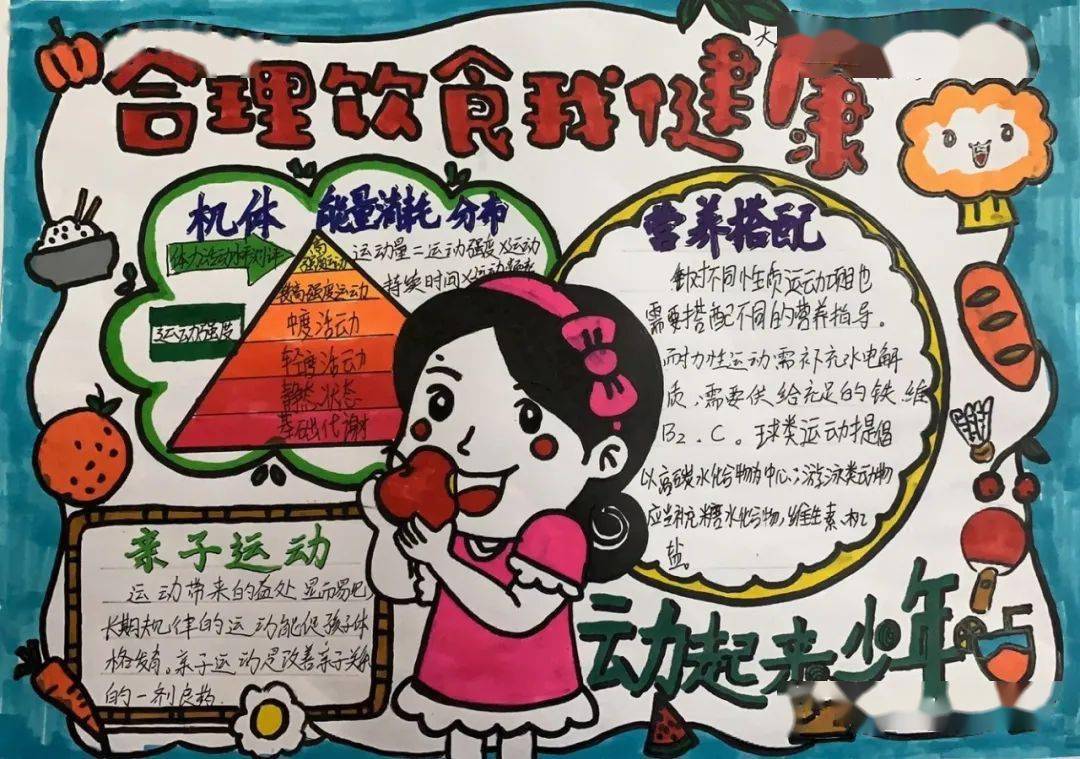 合理饮食我健康
大
机体 能量消耗 分布
体力活动水平
运动强度
运动量=运动强度X运动
持续时间X运动
高
强度运动
较高强度运动
中度活动
轻度活动
静态状态
基础代谢
营养搭配
针对不同性质运动项也
需要搭配不同的营养指导。
耐力性运动需补充水电解
质、需要供给充足的铁、维
B2、C。球类运动提倡
以高碳水化合物为中心;游泳类动物
应当补充糖水化合物,维生素、机
盐。
亲子运动
运动带来的益处显而易见,
长期规律的运动能促孩子体
格发育。亲子运动是改善亲子关
的一剂良药.
云力起来少年